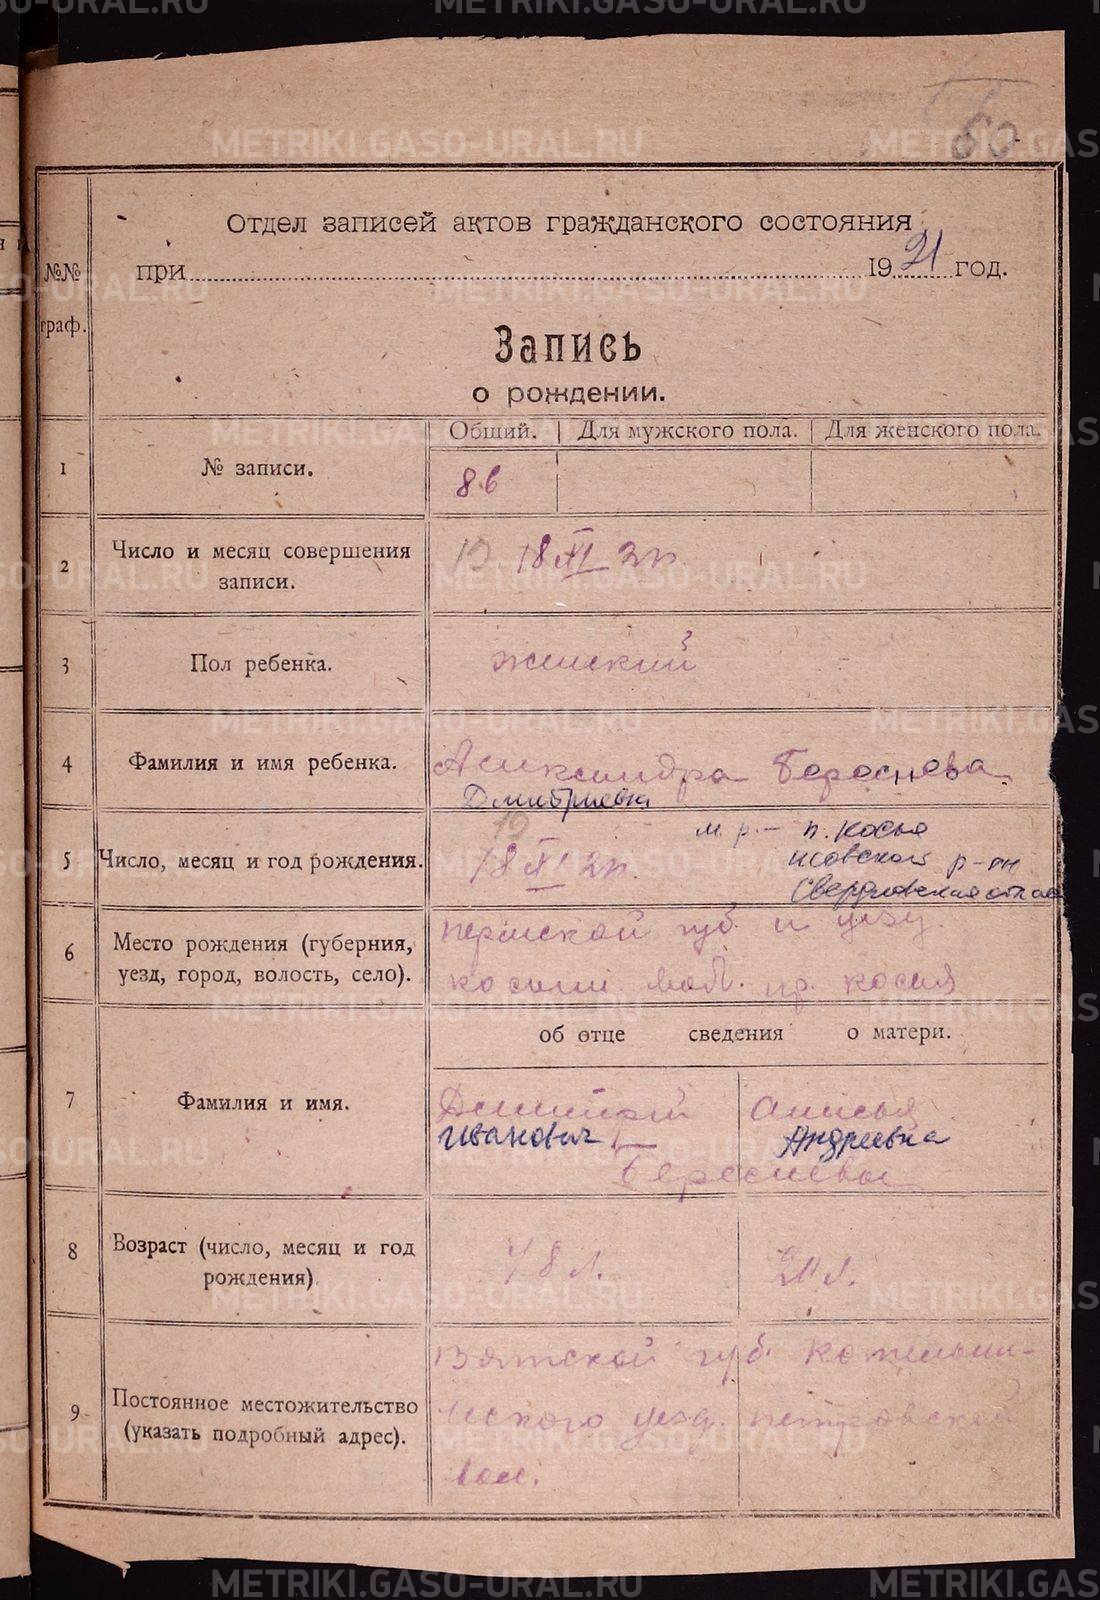 METRIKI.GASO-URAL.RU
60
Отдел записей актов гражданского состояния
при 1921 год.
№№ граф.
Запись
о рождении.
Общий. Для мужского пола. Для женского пола.
1 № записи. 86
2 Число и месяц совершения
записи.
19 18 XI 21 г.
3 Пол ребенка. женский
4 Фамилия и имя ребенка. Александра Береснева
Дмитриевна
м. р. – п. Косья
Исовской р-он
Свердловская область
5 Число, месяц и год рождения. 19 18 XI 21 г.
6 Место рождения (губерния,
уезд, город, волость, село).
пермской губ. и уезу.
вол. пр. косья
об отце сведения о матери.
7 Фамилия и имя. Дмитрий Анисья
Иванович Андреевна
Бересневы
8 Возраст (число, месяц и год
рождения)
48 л.
9 Постоянное местожительство
(указать подробный адрес).
Вятской губ. Котельни-
ческого уезд. петровской
вол.